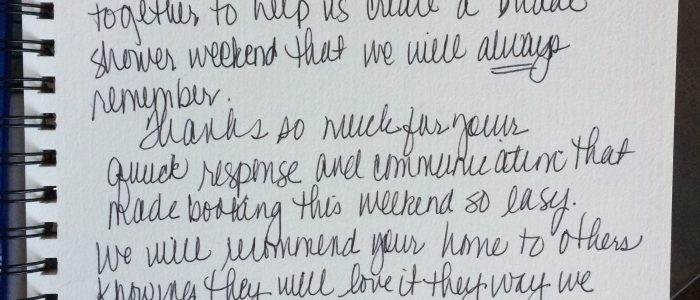 together to help us create a bridal
shower weekend that we will always
remember.
Thanks so much for your
quick response and communication that
made booking this weekend so easy.
We will recommend your home to others
knowing they will love it they way we